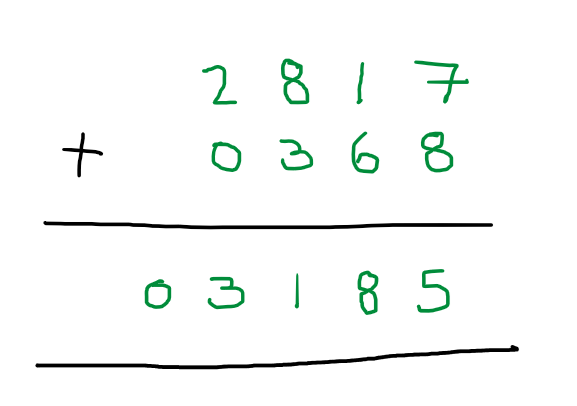 2817
+ 0368
03185